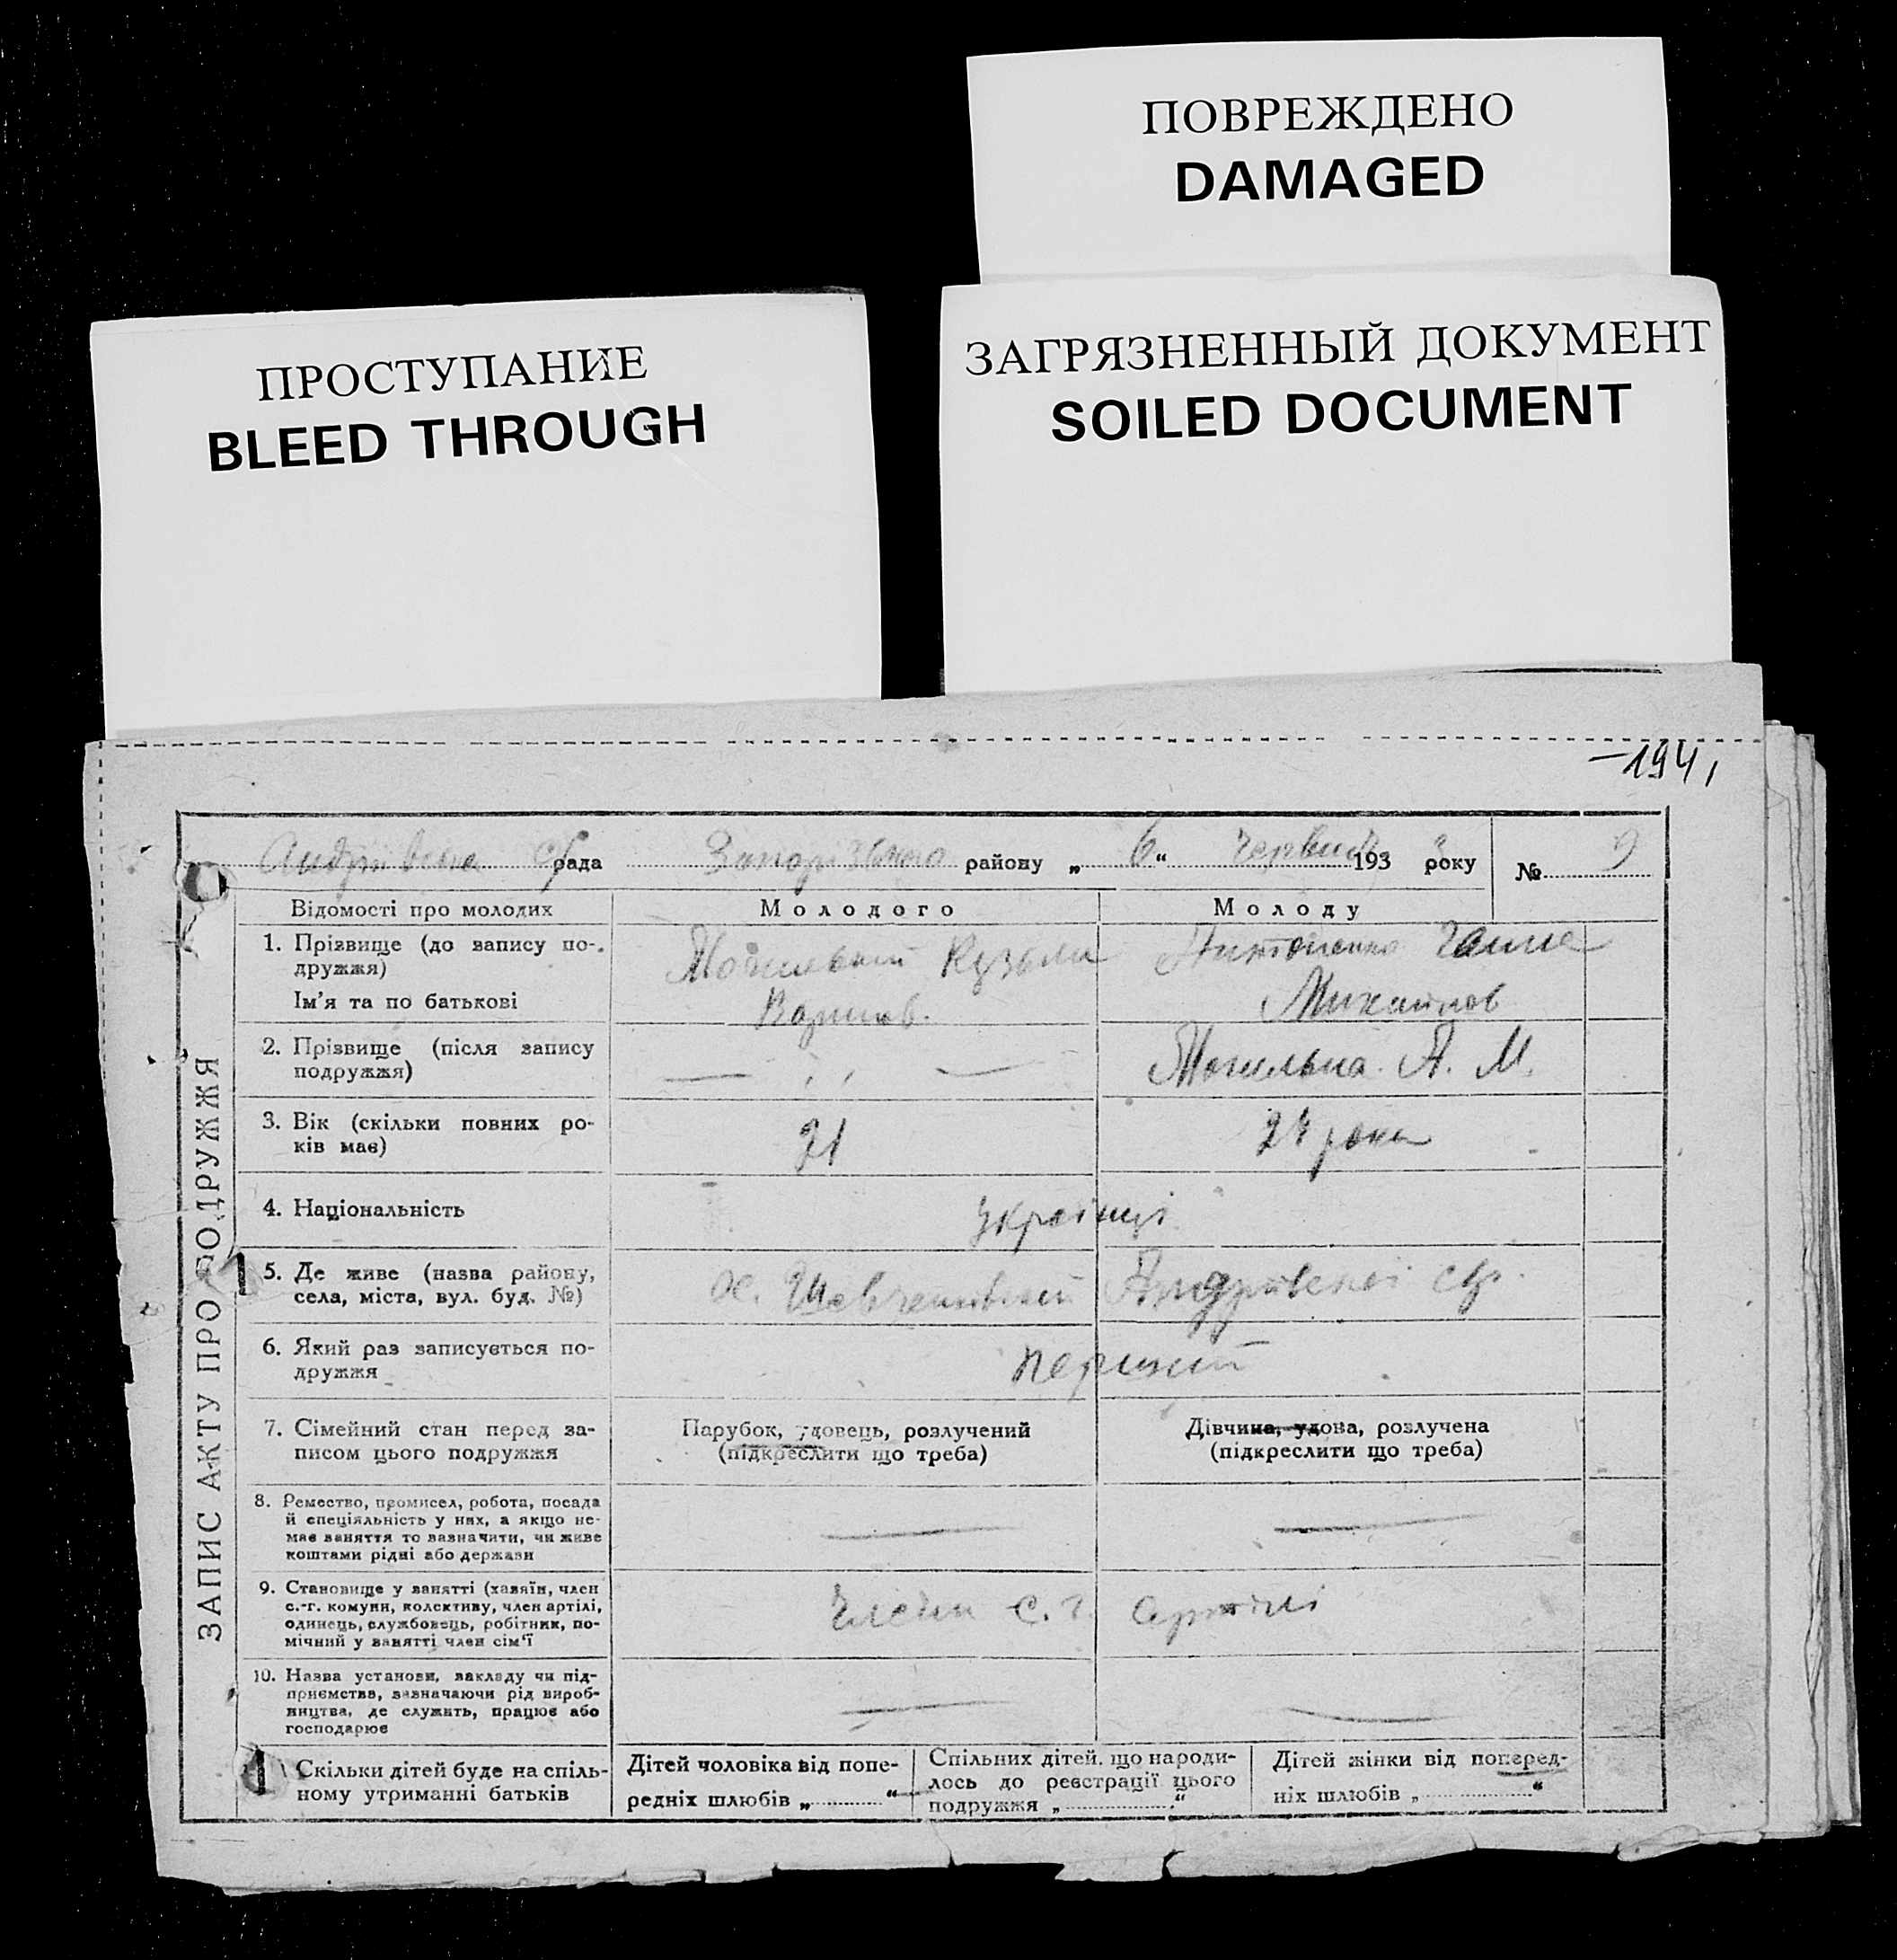 ПОВРЕЖДЕНО
DAMAGED
ПРОСТУПАНИЕ
BLEED THROUGH
ЗАГРЯЗНЕННЫЙ ДОКУМЕНТ
SOILED DOCUMENT
ЗАПИС АКТУ ПРО ПОДРУЖЖЯ
рада району „ 6 “ 193 року № 9
Відомості про молодих Молодого Молоду
1. Прізвище (до запису по-
дружжя)
Ім'я та по батькові
Кузьма
Михайлов
2. Прізвище (після запису
подружжя)
А. М.
3. Вік (скільки повних ро-
ків має)
21
4. Національність
Українці
5. Де живе (назва району,
села, міста, вул. буд. №)
6. Який раз записується по-
дружжя
перший
7. Сімейний стан перед за-
писом цього подружжя
Парубок, удовець, розлучений
(підкреслити що треба)
Дівчина, удова, розлучена
(підкреслити що треба)
8. Ремество, промисел, робота, посада
й спеціяльність у них, а якщо не-
має заняття то зазначити, чи живе
коштами рідні або держави
9. Становище у занятті (хазяїн, член
с.-г. комуни, колективу, член артілі,
одинець, службовець, робітник, по-
мічний у занятті член сім'ї
Члени с. г. артілі
10. Назва установи, закладу чи під-
приємства, зазначаючи рід вироб-
ництва, де служить, працює або
господарює
Скільки дітей буде на спіль-
ному утриманні батьків
Дітей чоловіка від попе-
редніх шлюбів „ “
Спільних дітей, що народи-
лось до реєстрації цього
подружжя „ “
Дітей жінки від поперед-
ніх шлюбів „ “